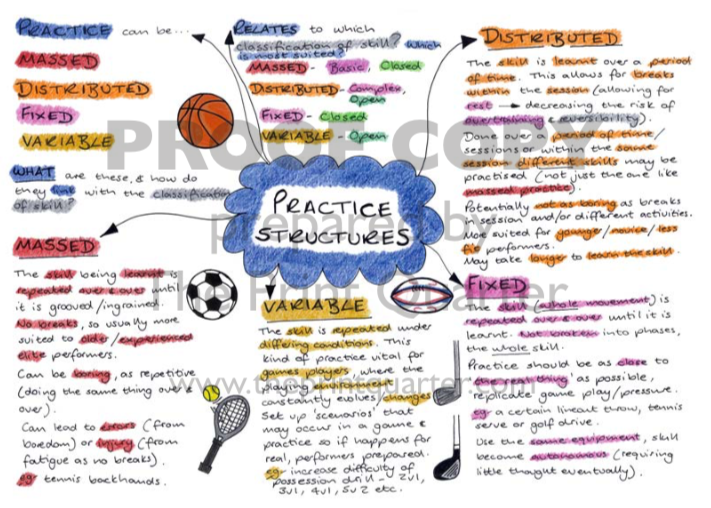 PRACTICE can be...
MASSED
DISTRIBUTED
FIXED
VARIABLE
WHAT are these, & how do
they link with the classification
of skill?
RELATES to which
classification of skill? Which
is most suited?
MASSED - Basic, Closed
DISTRIBUTED - Complex,
Open
FIXED - Closed
VARIABLE - Open
PRACTICE
STRUCTURES
DISTRIBUTED
The skill is learnt over a period
of time. This allows for breaks
within the session (allowing for
rest → decreasing the risk of
overtraining & reversibility).
Done over a period of time/
sessions or within the same
session different skills may be
practised (not just the one like
massed practice).
Potentially not as boring as breaks
in session and/or different activities.
More suited for younger/novice/less
fit performers.
May take longer to learn the skill.
MASSED
The skill being learnt is
repeated over & over until
it is grooved/ingrained.
No breaks, so usually more
suited to older/experienced
elite performers.
Can be boring, as repetitive
(doing the same thing over &
over).
Can lead to errors (from
boredom) or injury (from
fatigue as no breaks).
eg tennis backhands.
VARIABLE
The skill is repeated under
differing conditions. This
kind of practice vital for
games players where the
playing environment
constantly evolves/changes
Set up 'scenarios' that
may occur in a game &
practice so if happens for
real, performers prepared.
eg increase difficulty of
possession drill - 2v1,
3v1, 4v1, 5v2 etc.
FIXED
The skill (whole movement) is
repeated over & over until it is
learnt. Not broken into phases,
the whole skill.
Practice should be as close to
the 'real thing' as possible,
replicate game play/pressure.
eg a certain lineout throw, tennis
serve or golf drive.
Use the same equipment, skill
become autonomous (requiring
little thought eventually).
PROOF COPY
prepared by
The Print Quarter
www.theprintquarter.com